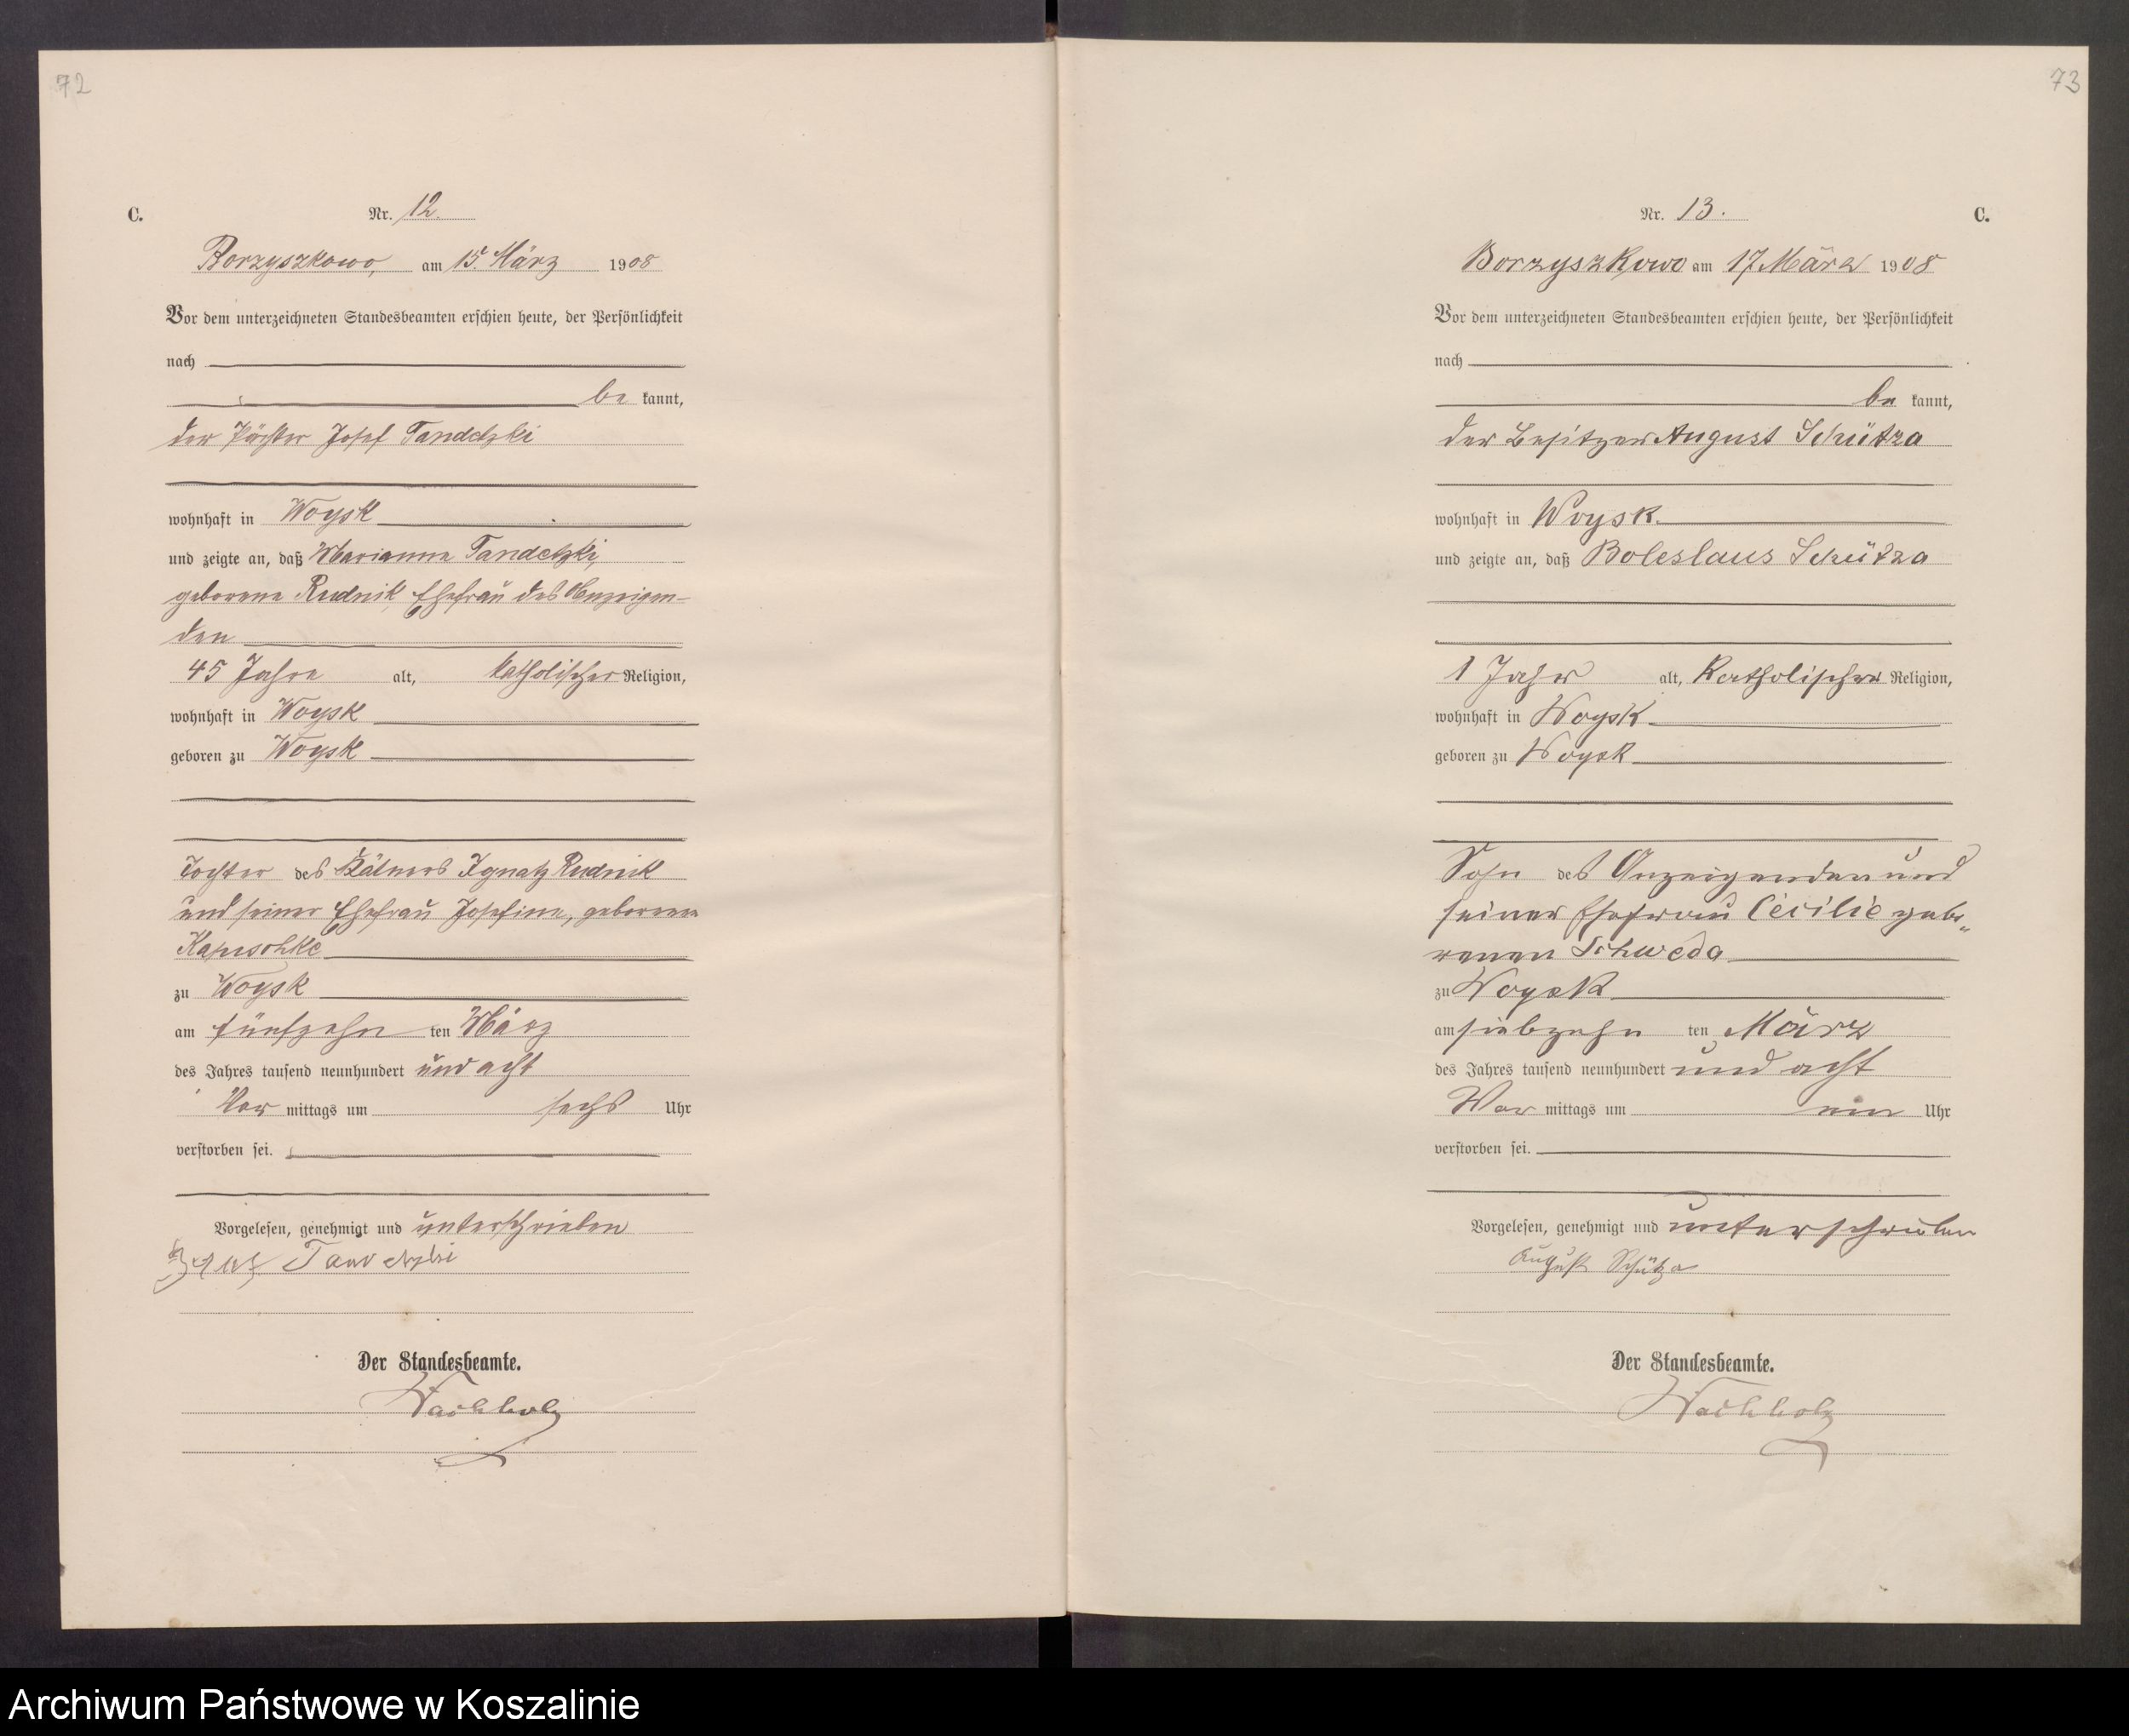 72
C.
Nr. 12.
Borzyszkowo, am 15. März 1908
Vor dem unterzeichneten Standesbeamten erschien heute, der Persönlichkeit
nach
be kannt,
der Pächter Josef Tandetzki
wohnhaft in Woysk
und zeigte an, daß Marianna Tandetzki,
geborene Rudnik, Ehefrau des Anzeigen-
den
45 Jahre alt, katholischer Religion,
wohnhaft in Woysk
geboren zu Woysk
Tochter des Kätners Ignatz Rudnik
und seiner Ehefrau Josefine, geborenen
zu Woysk
am fünfzehn ten März
des Jahres tausend neunhundert und acht
Vor mittags um sechs Uhr
verstorben sei.
Vorgelesen, genehmigt und unterschrieben
Tandetzki
Der Standesbeamte.
Wachholz
73
Nr. 13.
C.
Borzyszkowo am 17 März 1908
Vor dem unterzeichneten Standesbeamten erschien heute, der Persönlichkeit
nach
be kannt,
der Besitzer August Schütza
wohnhaft in Woysk.
und zeigte an, daß Boleslaus Schütza
1 Jahr alt, Katholischer Religion,
wohnhaft in Woysk
geboren zu Woysk
Sohn des Anzeigenden und
seiner Ehefrau Cecilie gebo„
renen Schweda
zu Woysk
am siebzehn ten März
des Jahres tausend neunhundert und acht
Vor mittags um ein Uhr
verstorben sei.
Vorgelesen, genehmigt und unterschrieben
August Schütza
Der Standesbeamte.
Wachholz
Archiwum Państwowe w Koszalinie